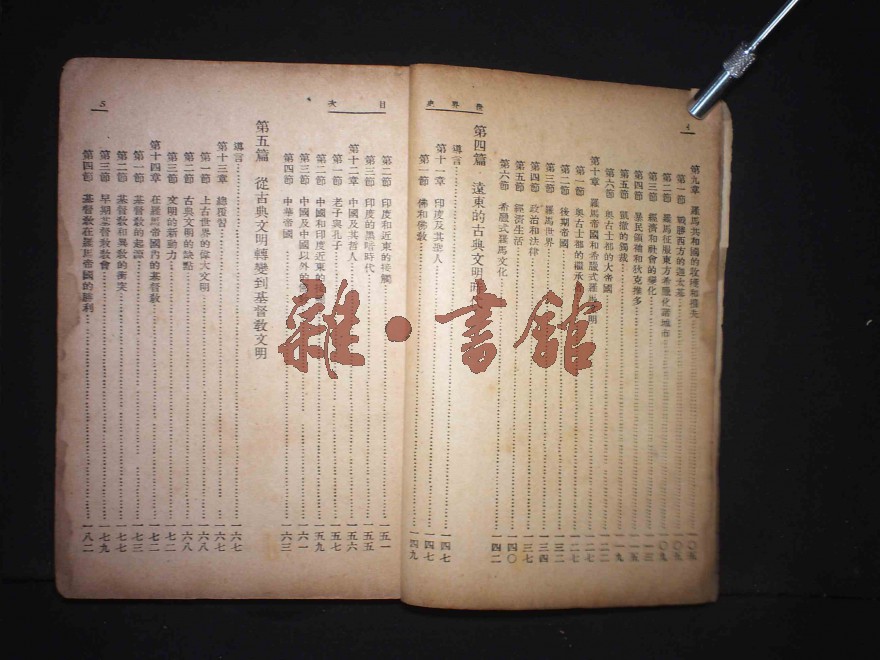 世界史
4
第九章 羅馬共和國的收穫和損失 一〇五
第一節 戰勝西方的迦太基 一〇五
第二節 羅馬征服東方希臘化諸城市 一〇九
第三節 經濟和社會的變化 一一三
第四節 暴民領袖和狄克推多 一一五
第五節 凱撒的獨裁 一一九
第六節 奧古士都的大帝國 一二二
第十章 羅馬帝國和希臘式羅馬文明 一二七
第一節 奧古士都的繼承者 一二七
第二節 後期帝國 一三二
第三節 羅馬世界 一三四
第四節 政治和法律 一三七
第五節 經濟生活 一四〇
第六節 希臘式羅馬文化 一四二
第四篇 遠東的古典文明時代
導言 一四七
第十一章 印度及其聖人 一四七
第一節 佛和佛教 一四九
目次
5
第二節 印度和近東的接觸 一五一
第三節 印度的黑暗時代 一五五
第十二章 中國及其哲人 一五六
第一節 老子與孔子 一五七
第二節 中國和印度近東的接觸 一五九
第三節 中國及中國以外的 一六一
第四節 中華帝國 一六三
第五篇 從古典文明轉變到基督教文明
導言 一六七
第十三章 總複習 一六七
第一節 上古世界的偉大文明 一六八
第二節 古典文明的缺點 一六八
第三節 文明的新動力 一七二
第十四章 在羅馬帝國內的基督教 一七二
第一節 基督教的起源 一七三
第二節 基督教和異教的衝突 一七七
第三節 早期基督教教會 一七九
第四節 基督教在羅馬帝國的勝利 一八二
雜·書館